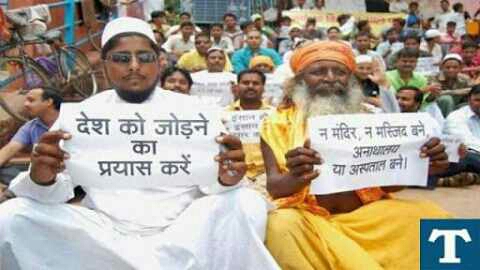 देश को जोड़ने
का
प्रयास करें
न मंदिर, न मस्जिद बने,
अनाथालय
या अस्पताल बने।
T